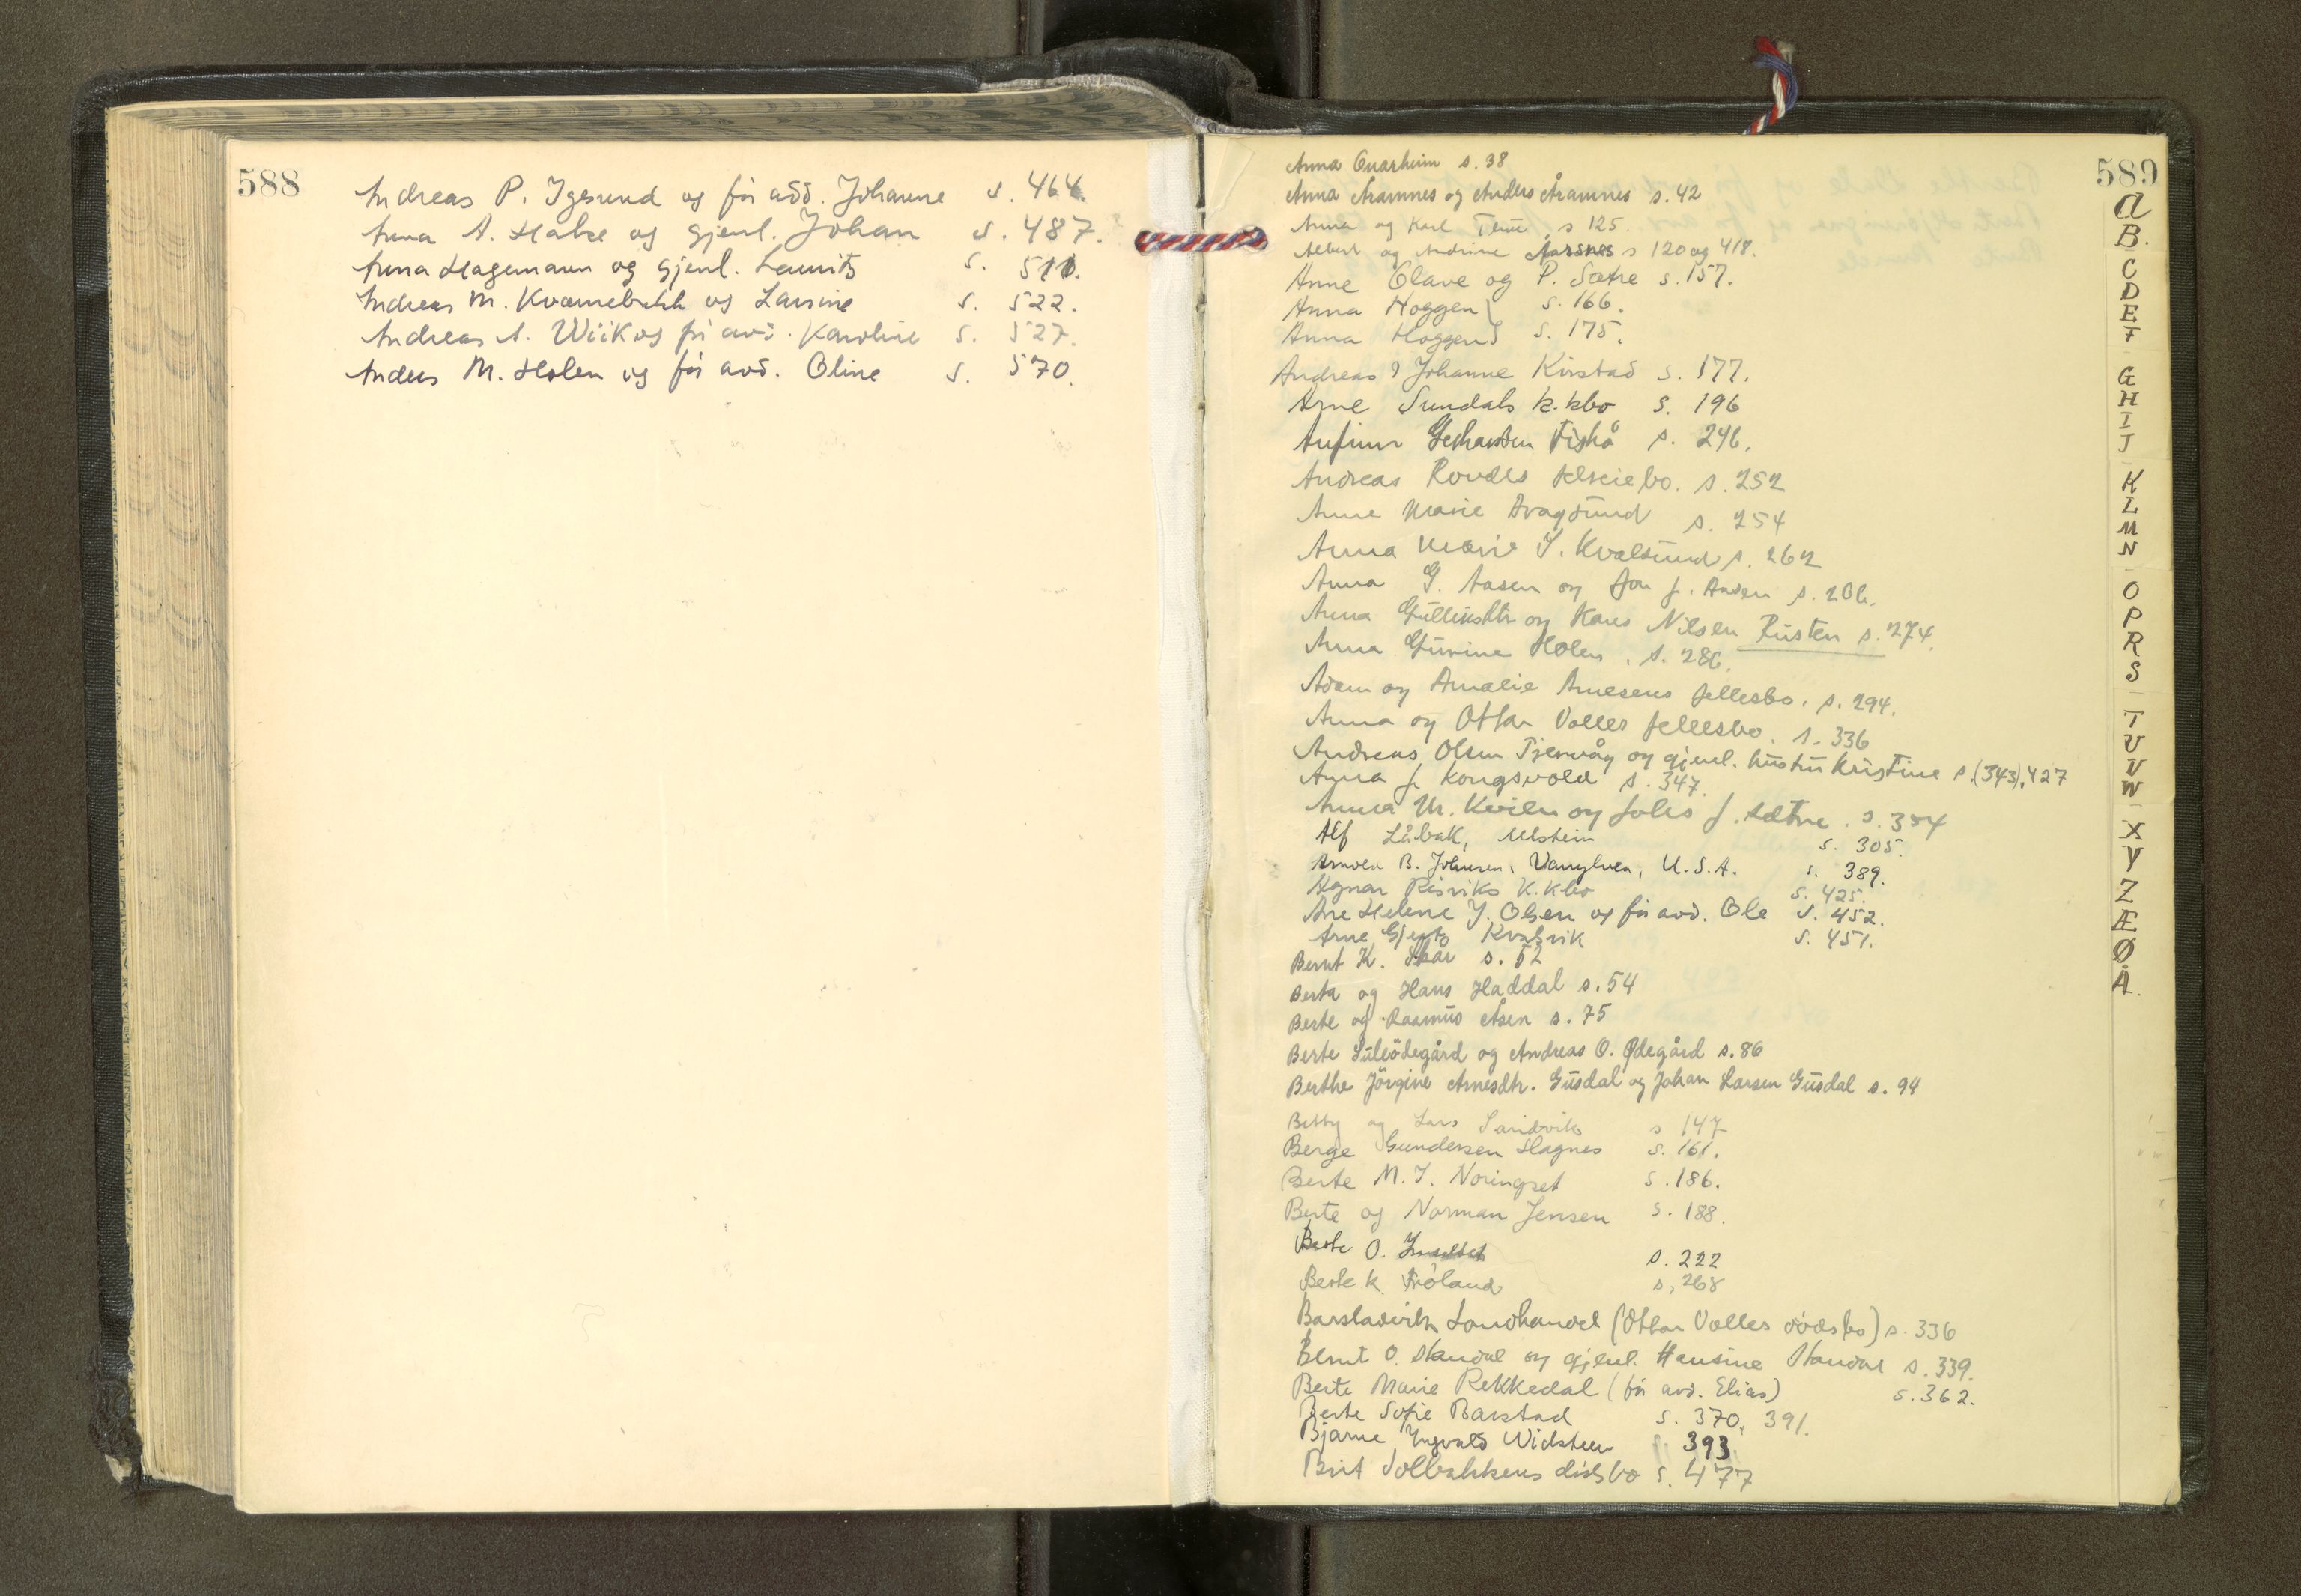 588
Andreas P. Igesund og før avd. Johanne s. 464.
Anna A. Hakse og gjenl. Johan s. 487.
Anna Hagemann og gjenl. Laurits s. 511.
Andreas M. Kvamnebakk og Larsine s. 522.
Andreas A. Wiik og før avd. Karoline s. 527.
Anders M. Holen og før avd. Oline s. 570.
589
Anna s. 38
Anna Åramnes og Anders Åramnes s. 42
Anna og Karl s 125.
Albert og Andrine Aarsnes s 120 og 418.
Anne Elave og P. Sætre s. 157.
Anna Hoggen s. 166.
Anna Hoggen s. 175.
Andreas & Johanne Kirstad s. 177.
Arne Sundals k.kbo s. 196
Fiskå s. 246.
Andreas Rovdes felseiebo. s. 252
Anne Marie Dragsund s. 254
Anna Marie J. Kvalsund s. 262
Anna G. Aasen og Jon J. Aasen s. 266.
Anna og Hans Nilsen Rusten s. 274.
Anna Gurine Holen. s. 286.
Adam og Amalie Arnesens fellesbo. s. 294.
Anna og Ottar Valles fellesbo. s. 336
Andreas Olsen Tjervåg og gjenl. hustru Kristine s. (343), 427
Anna J. Kongsvold s. 347.
Anna M. Kvien og J. Sætre. s. 354
Alf Låbak, Ulstein s. 305.
Arnold B. Johnsen, Vanylven, U.S.A. s. 389.
Agnar Risviks K.kbo s. 425.
Ane Helene J. Olsen og før avd. Ole s. 452.
Arne Gjerts Kvalsvik s. 451.
Bernt K. Skår s. 52
Berta og Hans Haddal s. 54
Berte og Rasmus Åsen s. 75
Berte Suleødegård og Andreas O. Ødegård s. 86
Berthe Jörgine Arnesdtr. Gusdal og Johan Larsen Gusdal s. 94
Betty og Lars Sandvik s 147
Berge Gundersen Hagnes s. 161.
Berte M. J. Noringset s. 186.
Berte og Norman Jensen s. 188.
Berte O. s. 222
Berte K. Frøland s. 268
Barstadvik Landhandel (Ottar Valles dødsbo) s. 336
Bernt O. Standal og gjenl. Hansine Standal s. 339.
Berte Marie Rekkedal (før avd. Elias) s. 362.
Berte Sofie Barstad s. 370, 391.
Bjarne Yngvald Widsteen s. 393
Brit Solbakkens dødsbo s. 477
A
B.
C
D
E
F
G
H
I
J
K
L
M
N
O
P
R
S
T
U
V
W
X
Y
Z
Æ
Ø
Å.